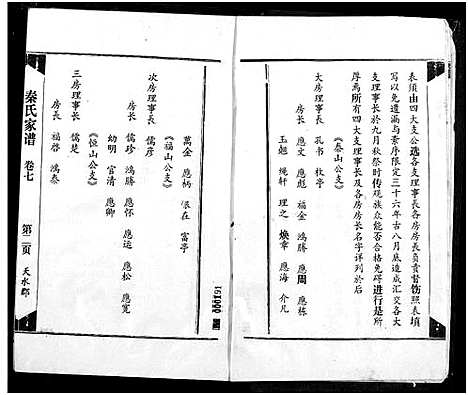 表须由四大支公选各支理事长各房房长负责督饬照表填
写以免遗漏与秩序限定三十六年古八月底造成汇交各大
支理事长於九月秋祭时传观族众能否合格免碍进行是所
厚焉所有四大支理事长及各房房长名字详列於后
《泰山公支》
大房理事长 孔书 秋亭
房长 應文 應彪 鸿勝 應周 應栋
玉魁 绳轩 理之 焕章 應海 介凡
《福山公支》
萬金 應柄 眾在 富亭
次房理事长 儒彦
房长 儒珍 鸿勝 應怀 應运 應松 應宽
幼明 官清 應卿
《恒山公支》
三房理事长 儒楚
房长 福啓 鸿泰
秦氏家谱 卷七 第二页 天水郡